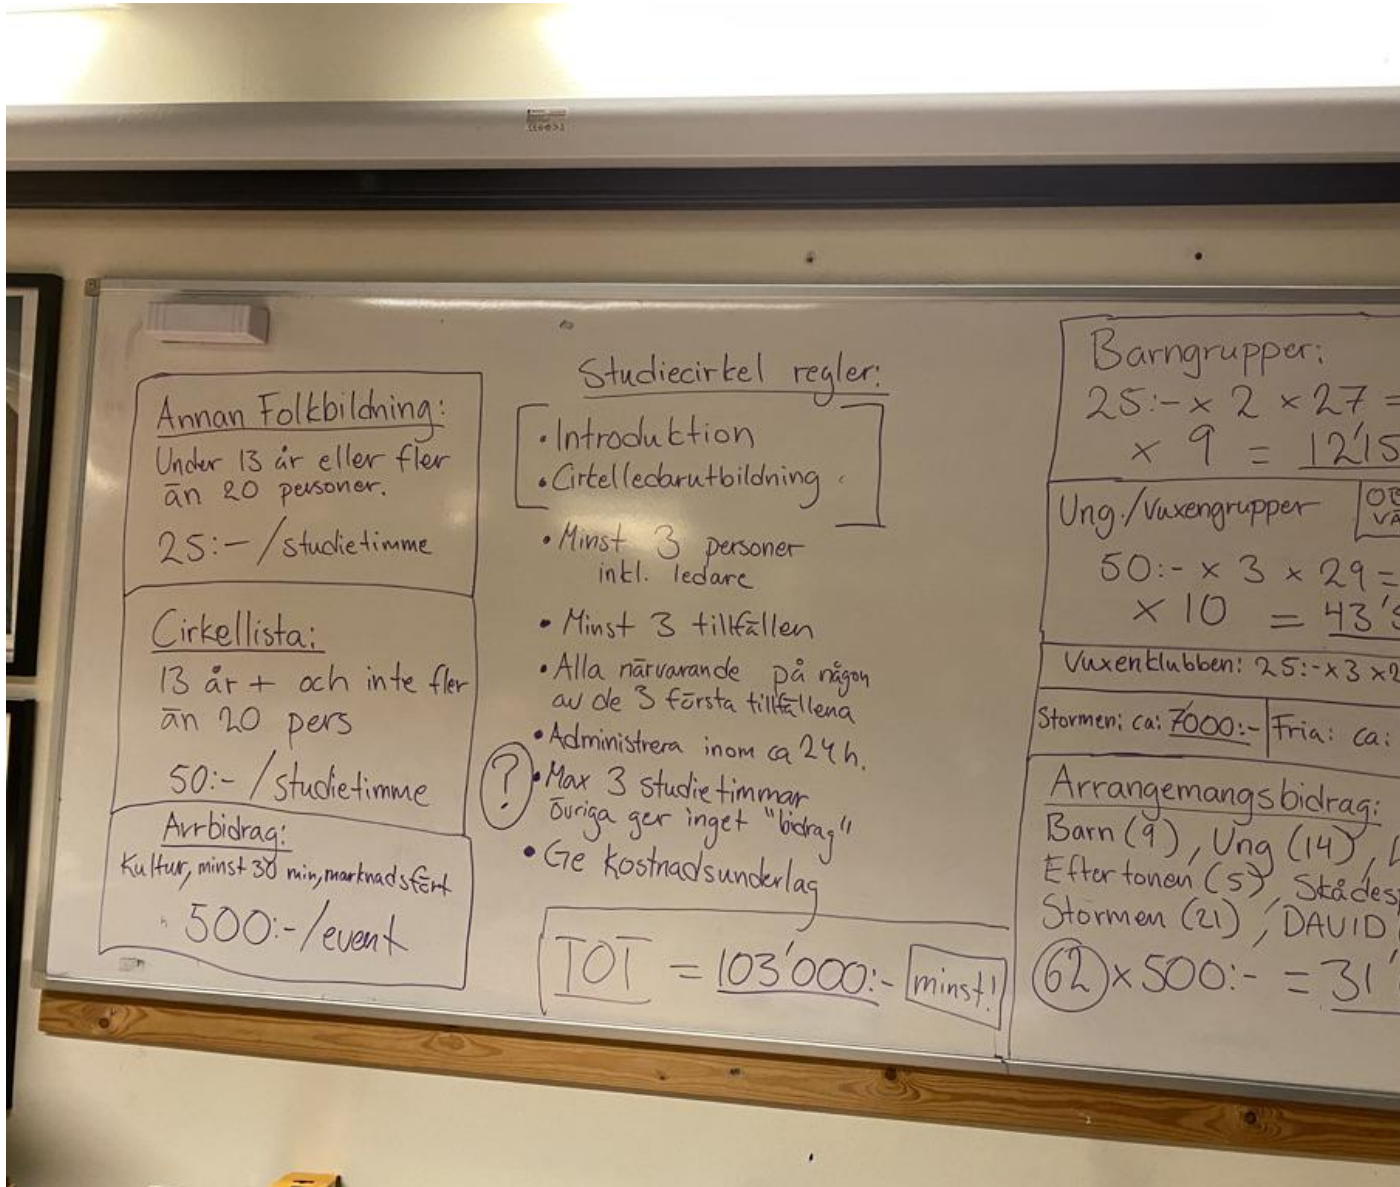 Annan Folkbildning:
Under 13 år eller fler
än 20 personer.
25:- / studietimme
Cirkellista:
13 år + och inte fler
än 20 pers
50:- / studietimme
Arrbidrag:
Kultur, minst 30 min, marknadsfört
500:- / event
Studiecirkel regler:
• Introduktion
• Cirkelledarutbildning
• Minst 3 personer
inkl. ledare
• Minst 3 tillfällen
• Alla närvarande på någon
av de 3 första tillfällena
• Administrera inom ca 24 h.
? • Max 3 studietimmar
övriga ger inget "bidrag"
• Ge kostnadsunderlag
TOT = 103'000:- minst!
Barngrupper:
25:- x 2 x 27 =
x 9 = 12'15
Ung./Vuxengrupper
50:- x 3 x 29 =
x 10 = 43'
Vuxenklubben: 25:- x 3 x 2
Stormen: ca: 7000:- Fria: ca:
Arrangemangsbidrag:
Barn (9), Ung (14),
Eftertonen (5), Skådes
Stormen (21), DAVID
62 x 500:- = 31'